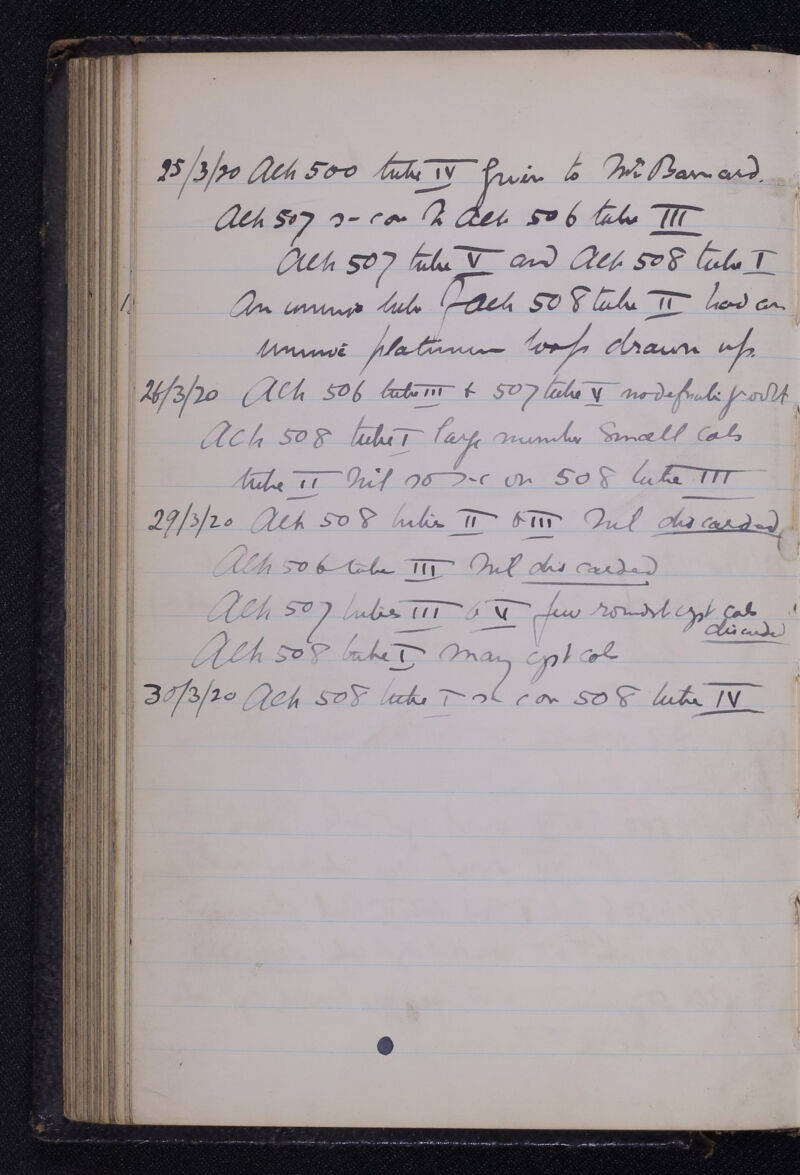 25/3/20 Ach 500 tube IV given to Mr Barnard.
Ach 507 s-c on to Ach 506 tube III
Ach 507 tube V and Ach 508 tube I
An tube of Ach 508 tube II had an
platinum loop drawn up.
26/3/20 Ach 506 tube III & 507 tube V no definite growth
Ach 508 tube I large number small cols
tube II Nil so s-c on 508 tube III
29/3/20 Ach 508 tubes II & III Nil discarded
Ach 506 tube III Nil discarded
Ach 507 tubes III & V few cols
discarded
Ach 508 tube I many col
30/3/20 Ach 508 tube I s c on 508 tube IV